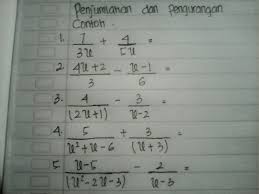 Penjumlahan dan pengurangan
Contoh.
1. 7/3x + 4/5x =
2. 4x+2/3 - x-1/6 =
3. 4/(2x+1) - 3/x-2 =
4. 5/x²+x-6 + 3/(x+3) =
5. x-5/(x²-2x-3) - 2/x-3 =